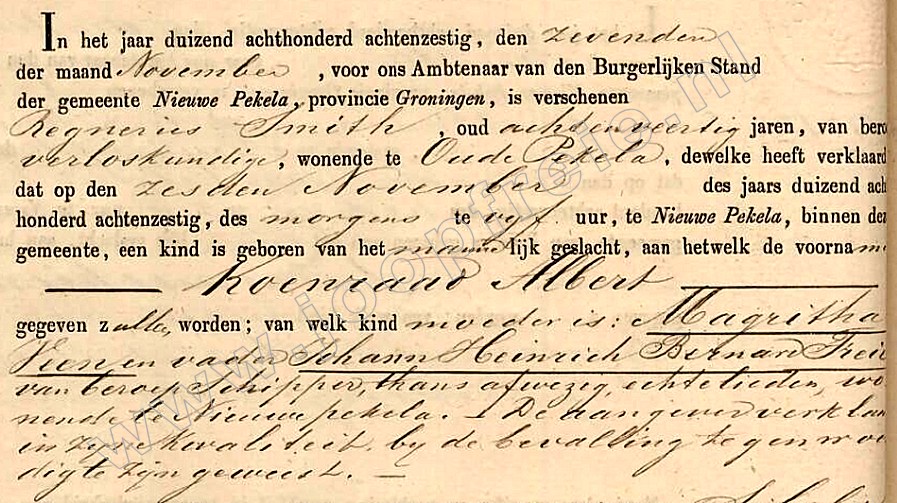 In het jaar duizend achthonderd achtenzestig, den zevenden
der maand November , voor ons Ambtenaar van den Burgerlijken Stand
der gemeente Nieuwe Pekela, provincie Groningen, is verschenen
Regnerus Smith , oud achtenveertig jaren, van bero
verloskundige, wonende te Oude Pekela, dewelke heeft verklaard
dat op den zesden November des jaars duizend ach
honderd achtenzestig, des morgens te vyf uur, te Nieuwe Pekela, binnen de
gemeente, een kind is geboren van het mannelijk geslacht, aan hetwelk de voorna
Koenraad Albert
gegeven zullen worden; van welk kind moeder is: Magritha
Veen en vader Johann Heinrich Bernard Frei
van beroep Schipper, thans afwezig, echtelieden, wo
nende te Nieuwe pekela. – De aangever verklaa
in zyne kwaliteit by de bevalling tegenwoo
digte zyn geweest. –
www.joopfreie.nl